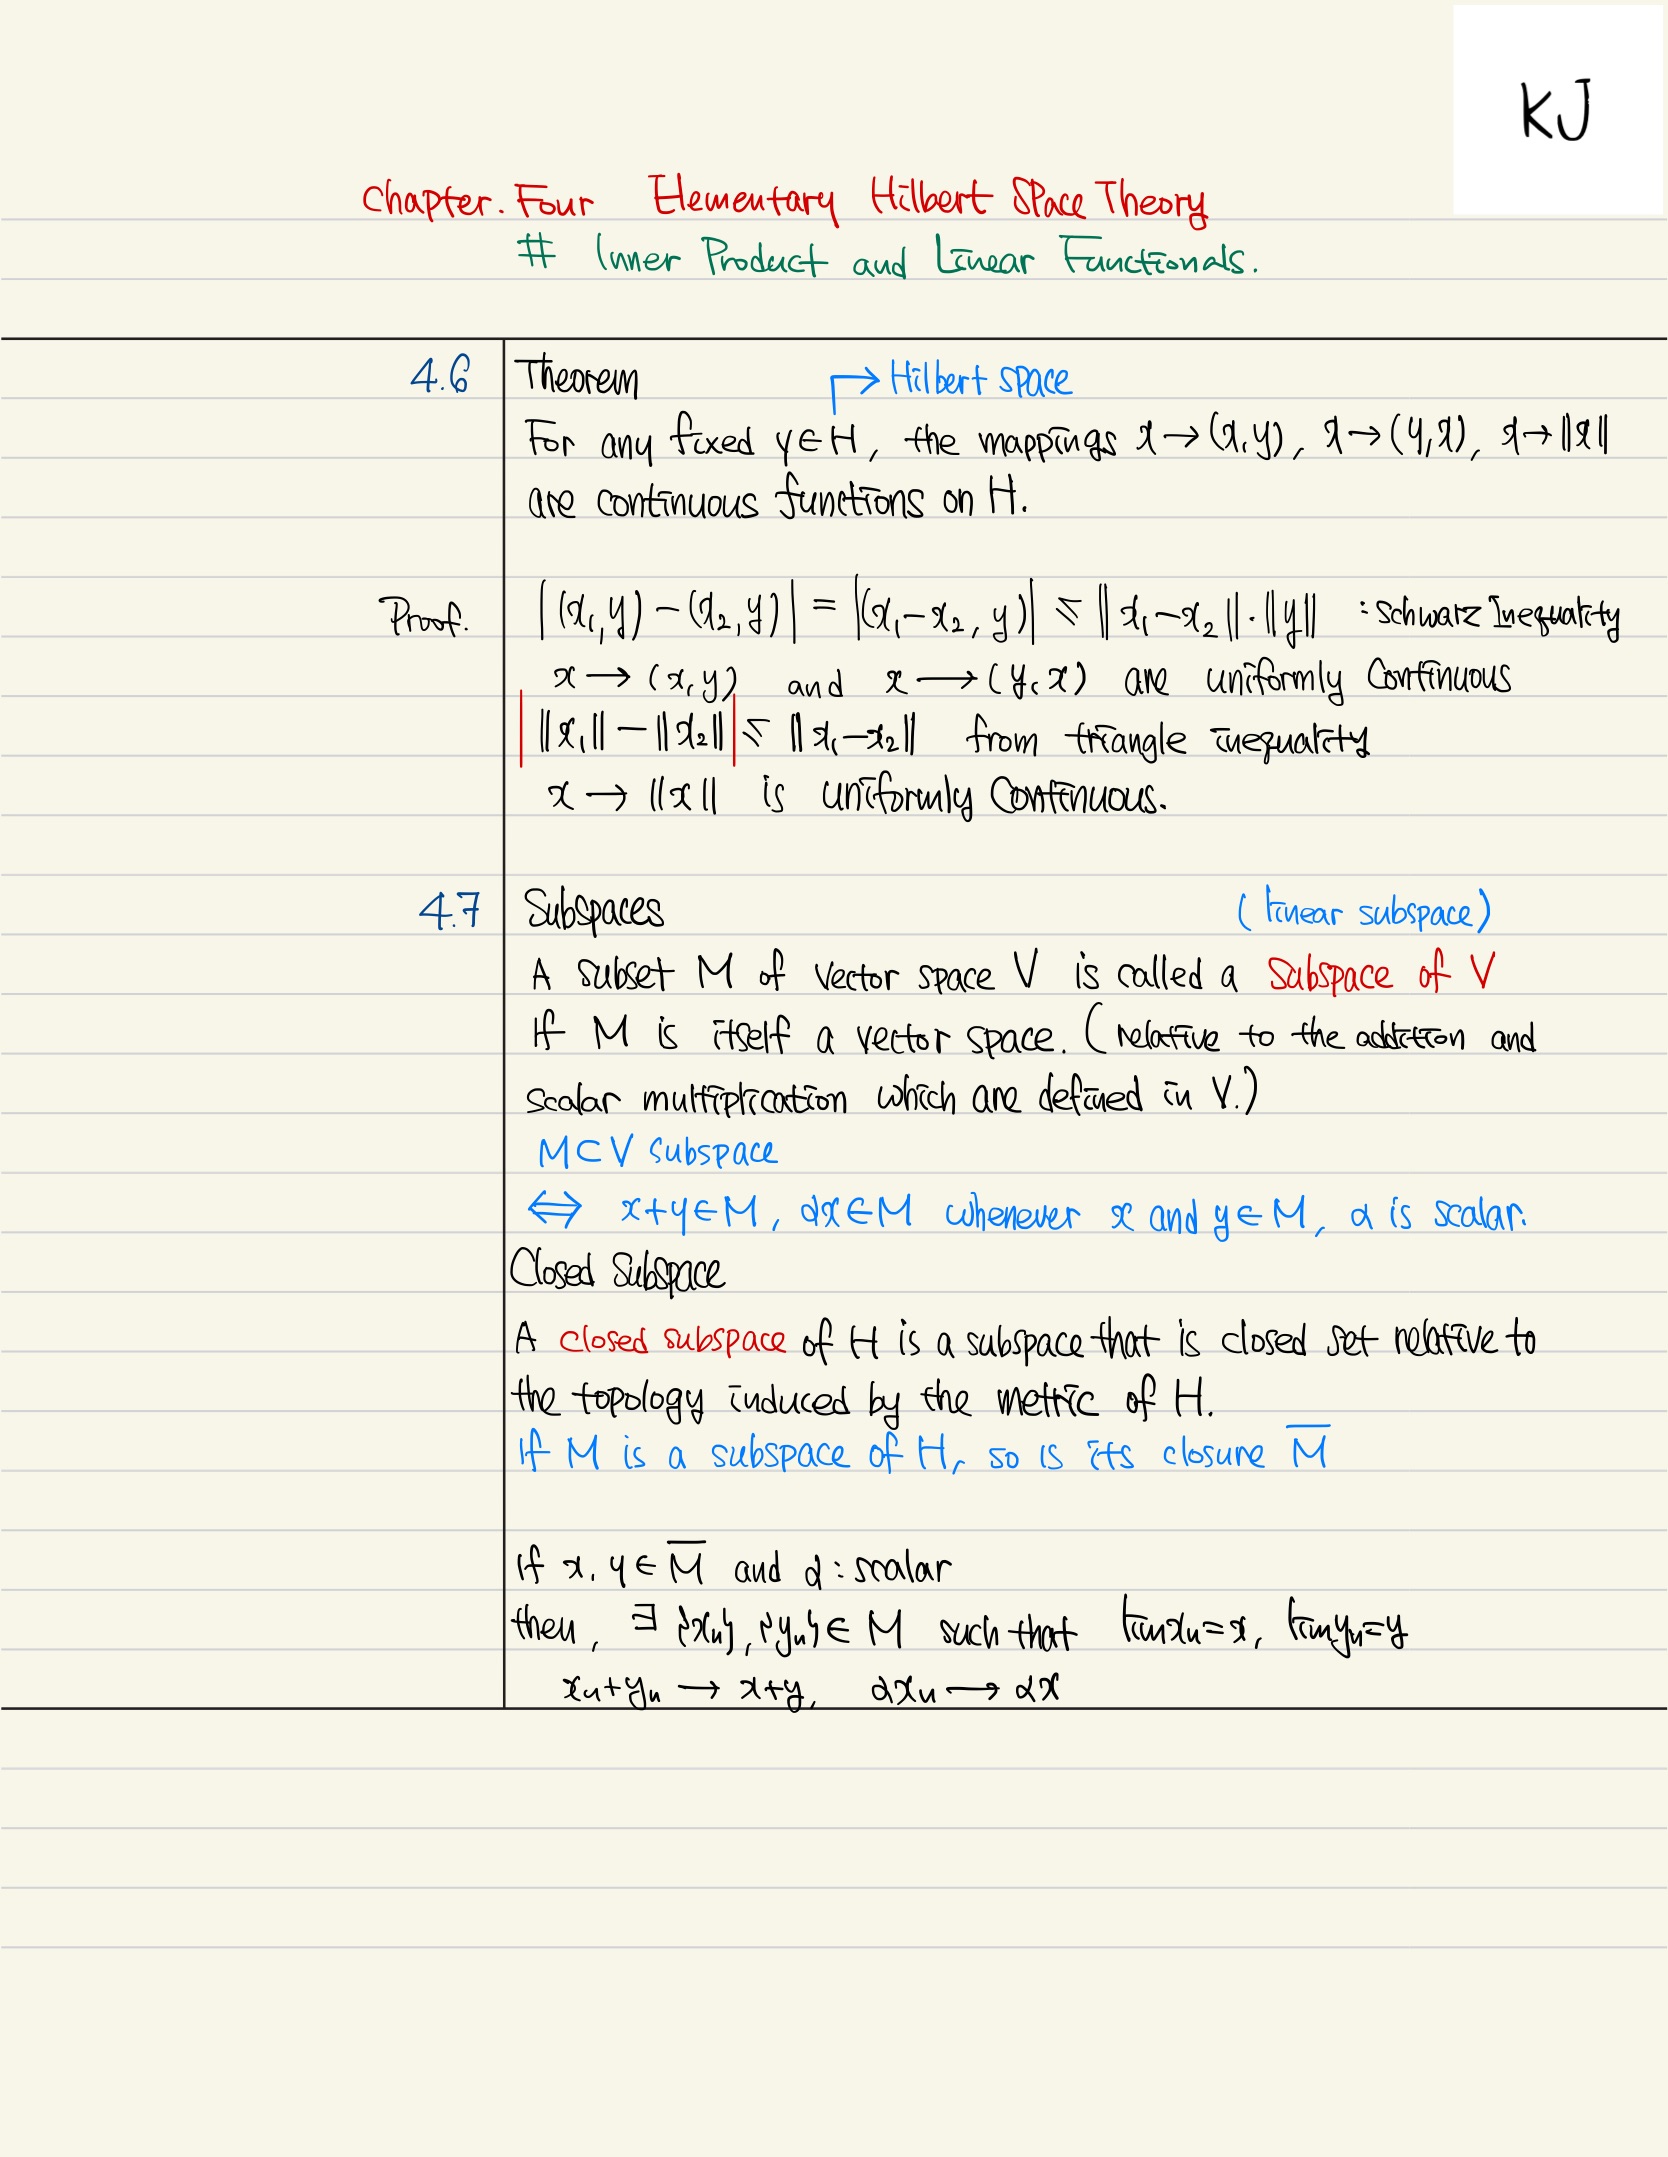 KJ
Chapter. Four Elementary Hilbert Space Theory
# Inner Product and Linear Functionals.
4.6 Theorem → Hilbert space
For any fixed y∈H, the mappings x→(x,y), x→(y,x), x→‖x‖
are continuous functions on H.
Proof. |(x₁,y)-(x₂,y)| = |(x₁-x₂,y)| ≤ ‖x₁-x₂‖·‖y‖ : Schwarz Inequality
x→(x,y) and x→(y,x) are uniformly Continuous
|‖x₁‖-‖x₂‖| ≤ ‖x₁-x₂‖ from triangle inequality
x→‖x‖ is uniformly Continuous.
4.7 Subspaces (linear subspace)
A subset M of Vector space V is called a Subspace of V
If M is itself a vector space. (relative to the addition and
scalar multiplication which are defined in V.)
M⊂V subspace
⇔ x+y∈M, αx∈M whenever x and y∈M, α is scalar.
Closed Subspace
A closed subspace of H is a subspace that is closed set relative to
the topology induced by the metric of H.
If M is a subspace of H, so is its closure M̅
If x, y∈M̅ and α : scalar
then, ∃ {xₙ}, {yₙ}∈M such that lim xₙ=x, lim yₙ=y
xₙ+yₙ→x+y, αxₙ→αx